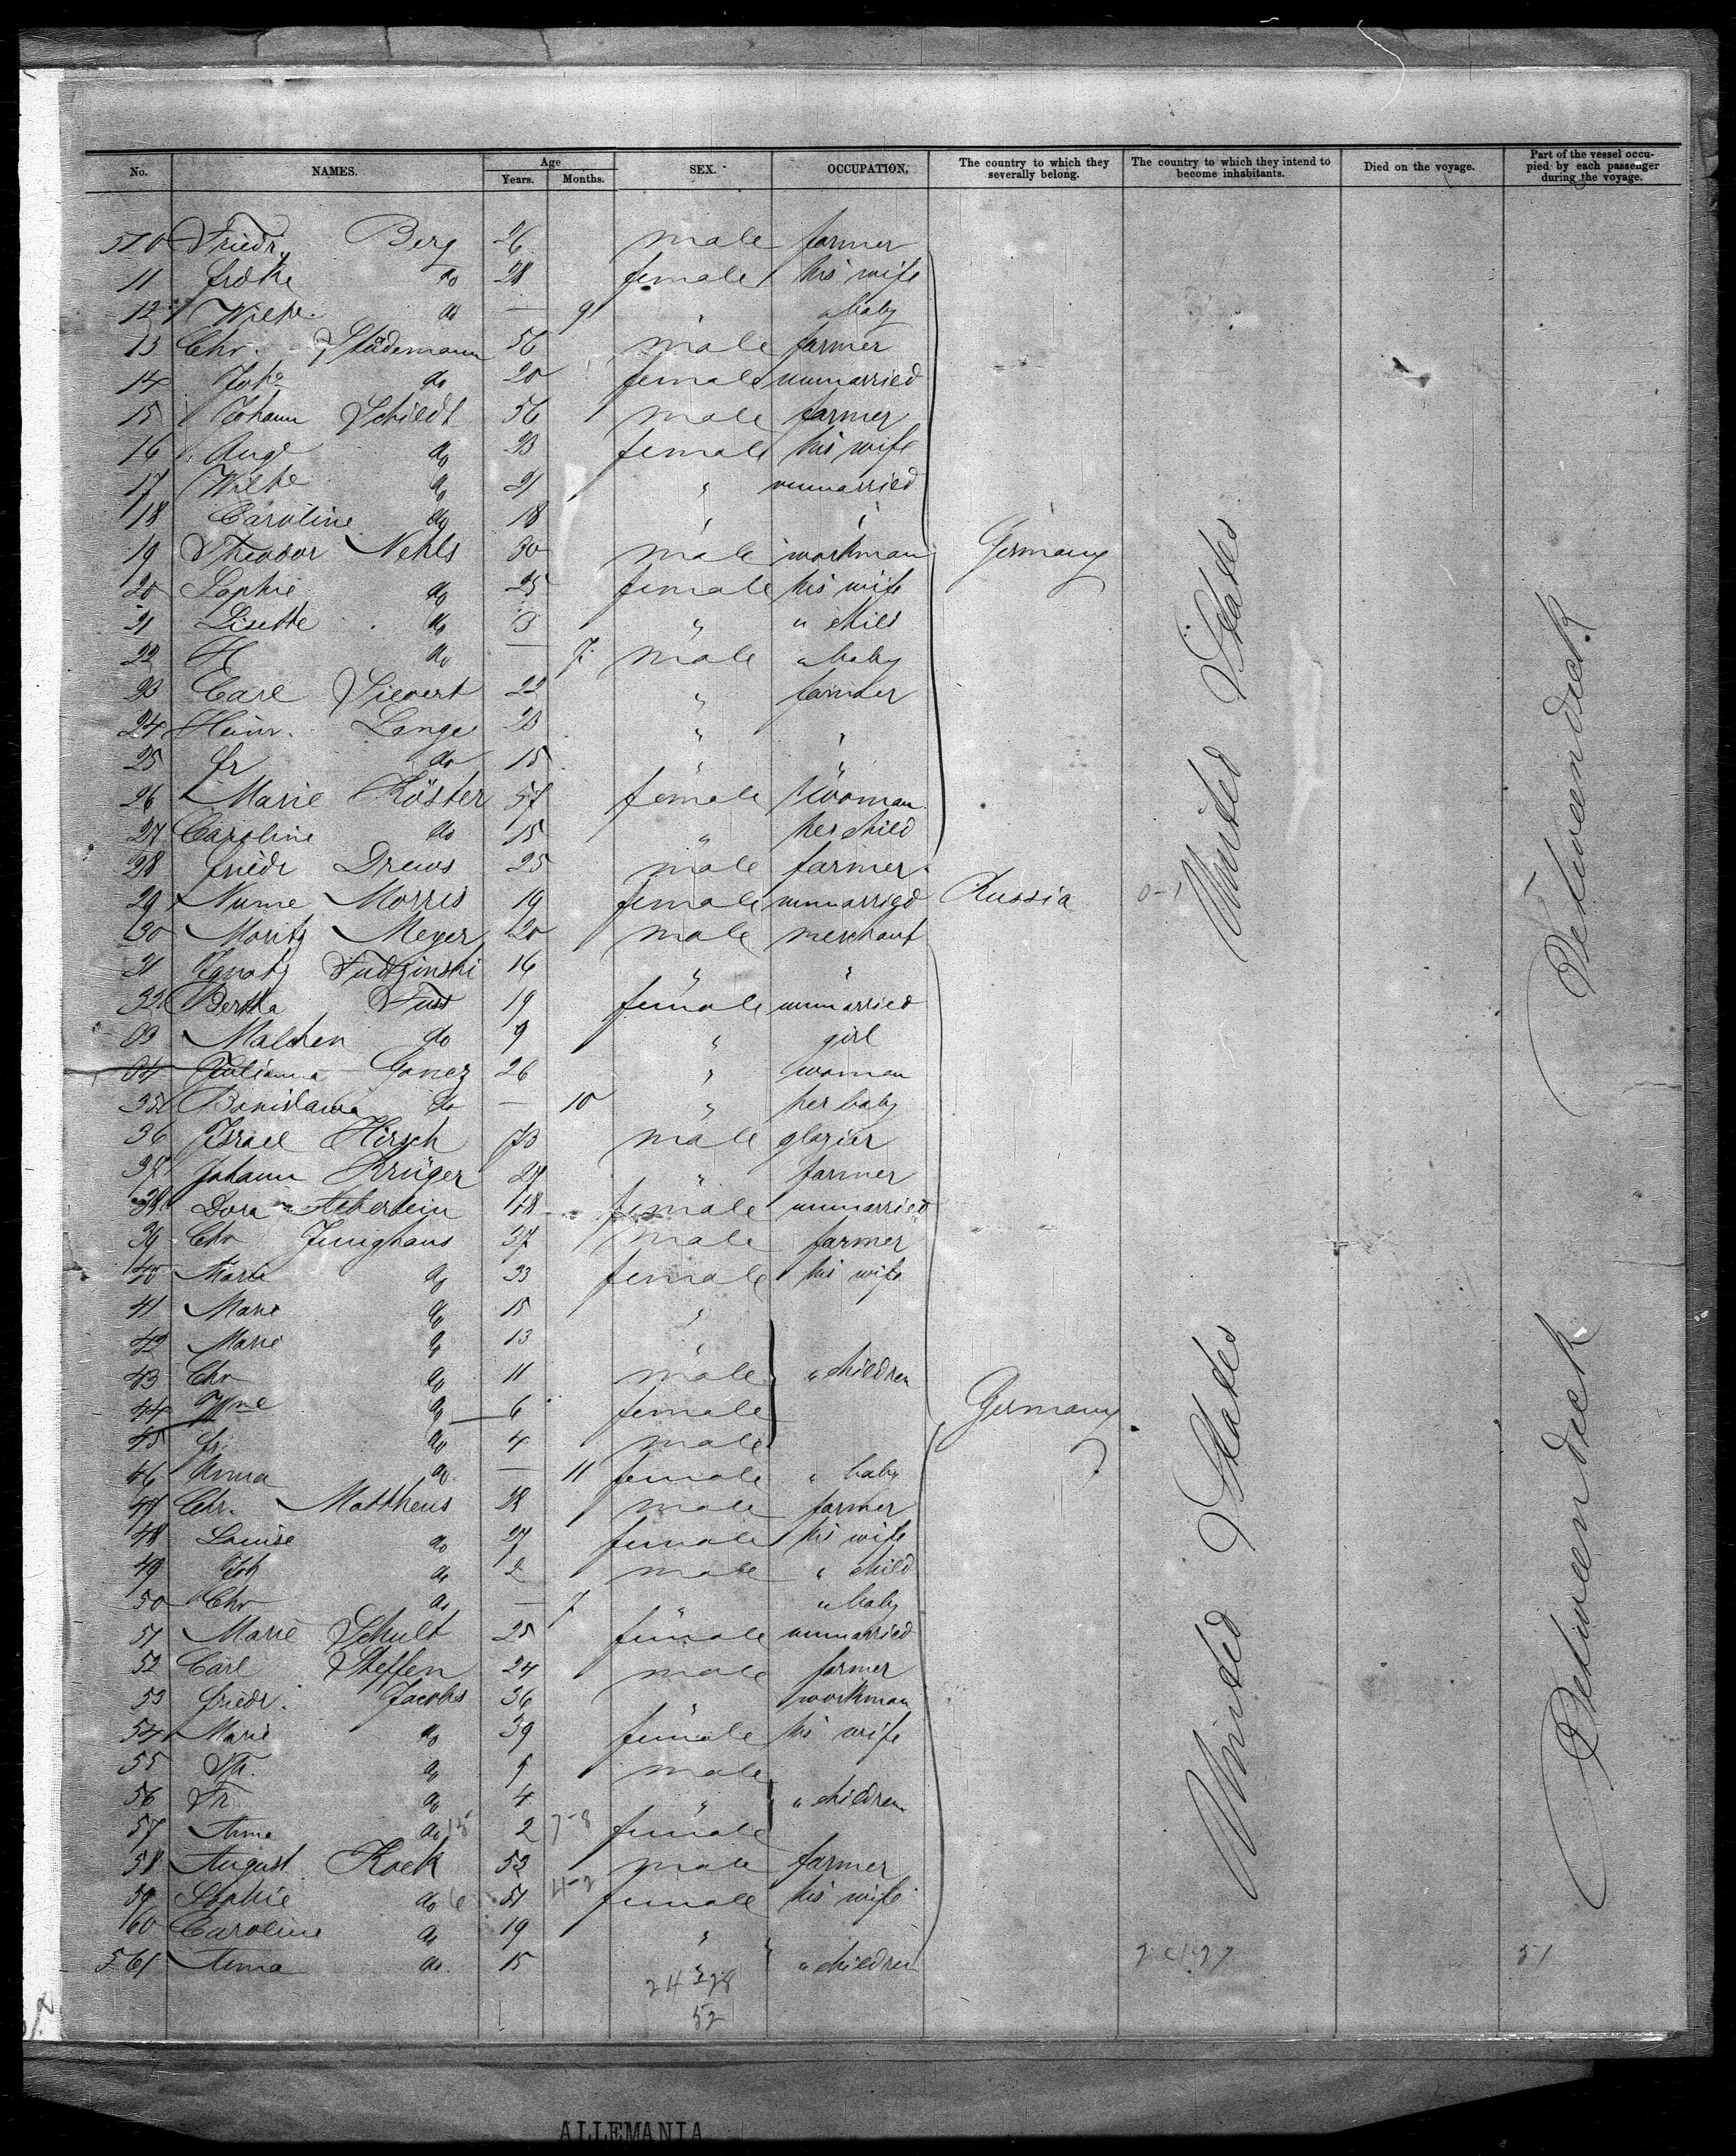 No. NAMES. Age Years. Months. SEX. OCCUPATION. The country to which they severally belong. The country to which they intend to become inhabitants. Died on the voyage. Part of the vessel occupied by each passenger during the voyage.
510 Friedr. Berg 26 male farmer
11 do 28 female his wife
12 Wilhe. do — 9 " " baby
13 Chr. Städemann 56 male farmer
14 Johe do 20 female unmarried
15 Johann Schildt 56 male farmer
16 Auge do 23 female his wife
17 Wilhe do 21 " unmarried
18 Caroline do 18 " "
19 Theodor Nehls 30 male workman Germany
20 Sophie do 25 female his wife
21 Lisette do 3 " " child
22 H do — 7 male " baby
23 Carl Sievert 22 " farmer
24 Heinr. Lange 23 " "
25 Fr do 15 " "
26 Marie Köster 57 female woman
27 Caroline do 15 " her child
28 Friedr Drews 25 male farmer
29 Morris 19 female unmarried Russia 0-1
30 Moritz Meyer 20 male merchant
31 Ignatz Fudzinski 16 " "
32 Bertha Fuss 19 female unmarried
33 Malchen do 9 " girl
34 Julianna Gonez 26 " woman
35 do — 10 " her baby
36 Israel Hirsch 73 male glazier
37 Johann Krüger 27 " farmer
38 Dora 18 female unmarried
39 Chr Junghans 37 male farmer
40 Marie do 33 female his wife
41 Marie do 15 "
42 Marie do 13 "
43 Chr do 11 male " children
44 do 6 female Germany
45 Fr. do 4 male
46 Anna do — 11 female " baby
47 Chr. Mattheus 28 male farmer
48 Louise do 27 female his wife
49 Joh do 2 male " child
50 Chr do — 7 " " baby
51 Marie Schult 25 female unmarried
52 Carl Steffen 24 male farmer
53 Friedr. Jacobs 36 " workman
54 Marie do 39 female his wife
55 Th. do 9 male
56 Fr do 4 " " children
57 Anna do 15 2 7-8 female
58 August Koek 53 male farmer
59 Sophie do 6 51 4-2 female his wife
60 Caroline do 19 "
561 Anna do 15 " " children
24 28
52
51
United States
United States
Between deck
Between deck
ALLEMANIA